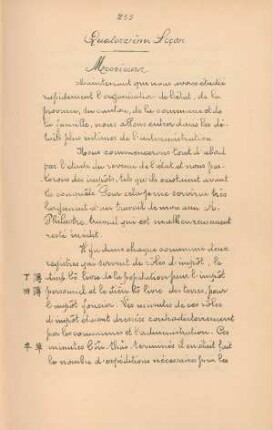 255
Quatorzième Leçon
Messieurs
Maintenant que nous avons étudié
rapidement l'organisation de l'état, de la
province, du canton, de la commune et de
la famille, nous allons entrer dans les dé-
tails plus intimes de l'administration.
Nous commencerons tout d'abord
par l'étude du revenu de l'état et nous par-
lerons des impôts, tels qu'ils existaient avant
la conquête. Pour cela je me servirai très
largement d'un travail de mon ami M.
Philastre, travail qui est malheureusement
resté inédit.
Il y a dans chaque commune deux
registres qui servent de rôles d'impôt, le
丁簿 đinh bộ livre de la population pour l'impôt
田簿 personnel et le điền bộ livre des terres, pour
l'impôt foncier. Les minutes de ces rôles
d'impôt étaient dressées contradictoirement
par les communes et l'administration. Ces
minutes terminées il en était fait
le nombre d'expéditions nécessaires pour les